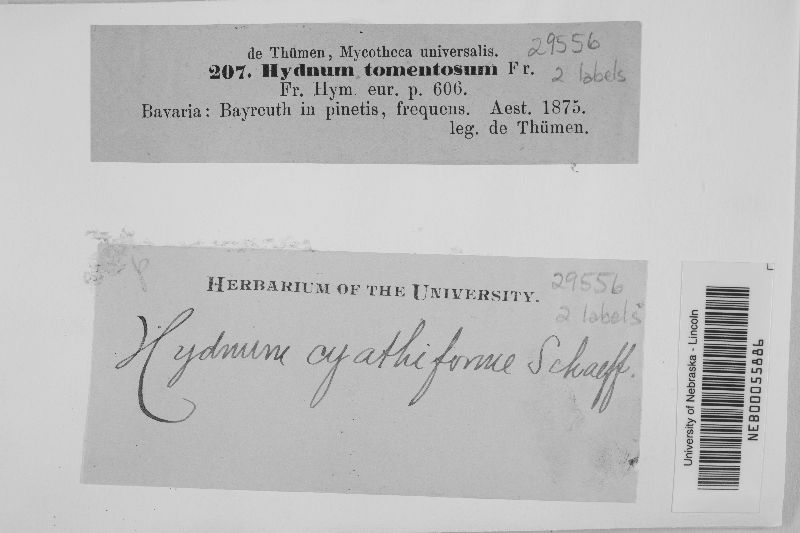 de Thümen, Mycotheca universalis.
29556
207. Hydnum tomentosum Fr.
2 labels
Fr. Hym. eur. p. 606.
Bavaria: Bayreuth in pinetis, frequens. Aest. 1875.
leg. de Thümen.
HERBARIUM OF THE UNIVERSITY.
29556
2 labels
Hydnum cyathiforme Schaeff.
University of Nebraska - Lincoln
NEB00055886